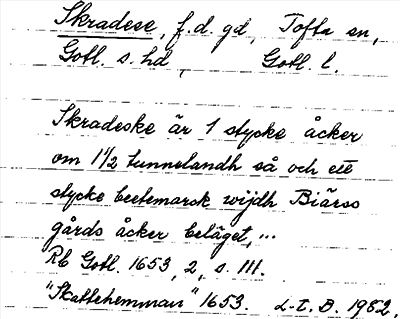 Skradese, f.d. gd, Tofta sn,
Gotl. s. hd, Gotl. l.
Skradeske är 1 stycke åcker
om 1 1/2 tunnelandh så och ett
stycke beetemarck wijdh Biärss
gårds åcker beläget,...
Rb Gotl. 1653, 2, s. 111.
"Skattehemman" 1653. L-E. D. 1982.